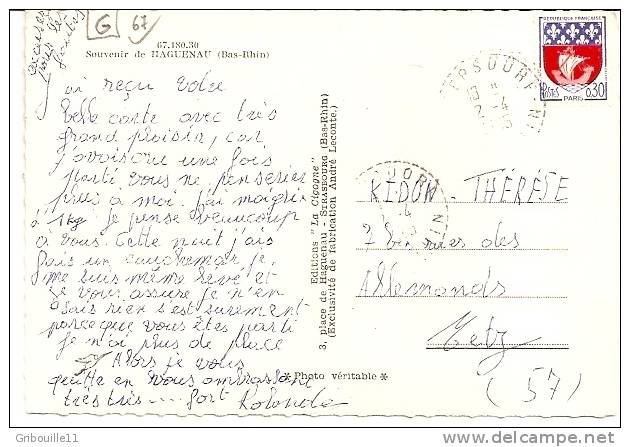 G 67
excuser
pour les
fautes
67.180.30
Souvenir de HAGUENAU (Bas-Rhin)
j'ai reçu votre
belle carte avec très
grand plaisir, car
j'avoisru une fois
parti vous ne penseriez
plus a moi. J'ai maigri
d'1kg je pense beaucoup
à vous. Cette nuit j'ais
fais un cauchemar je
me suis même levé et
je vous assure je n'en
sais rien s'est surement
parceque vous êtes parti
je n'ai plus de place
Alors je vous
quitte en vous ambrassant
tres tres .... fort Rolande
Editions "La Cigogne"
3, place de Haguenau - STRASBOURG (Bas-Rhin)
(Exclusivité de fabrication André Leconte.)
*Photo véritable*
REPUBLIQUE FRANÇAISE
POSTES 0,30
PARIS
KIDON - THÉRÈSE
7 bis rue des
Allemands
Metz
(57)
http://Gribouille11.delcampe.net